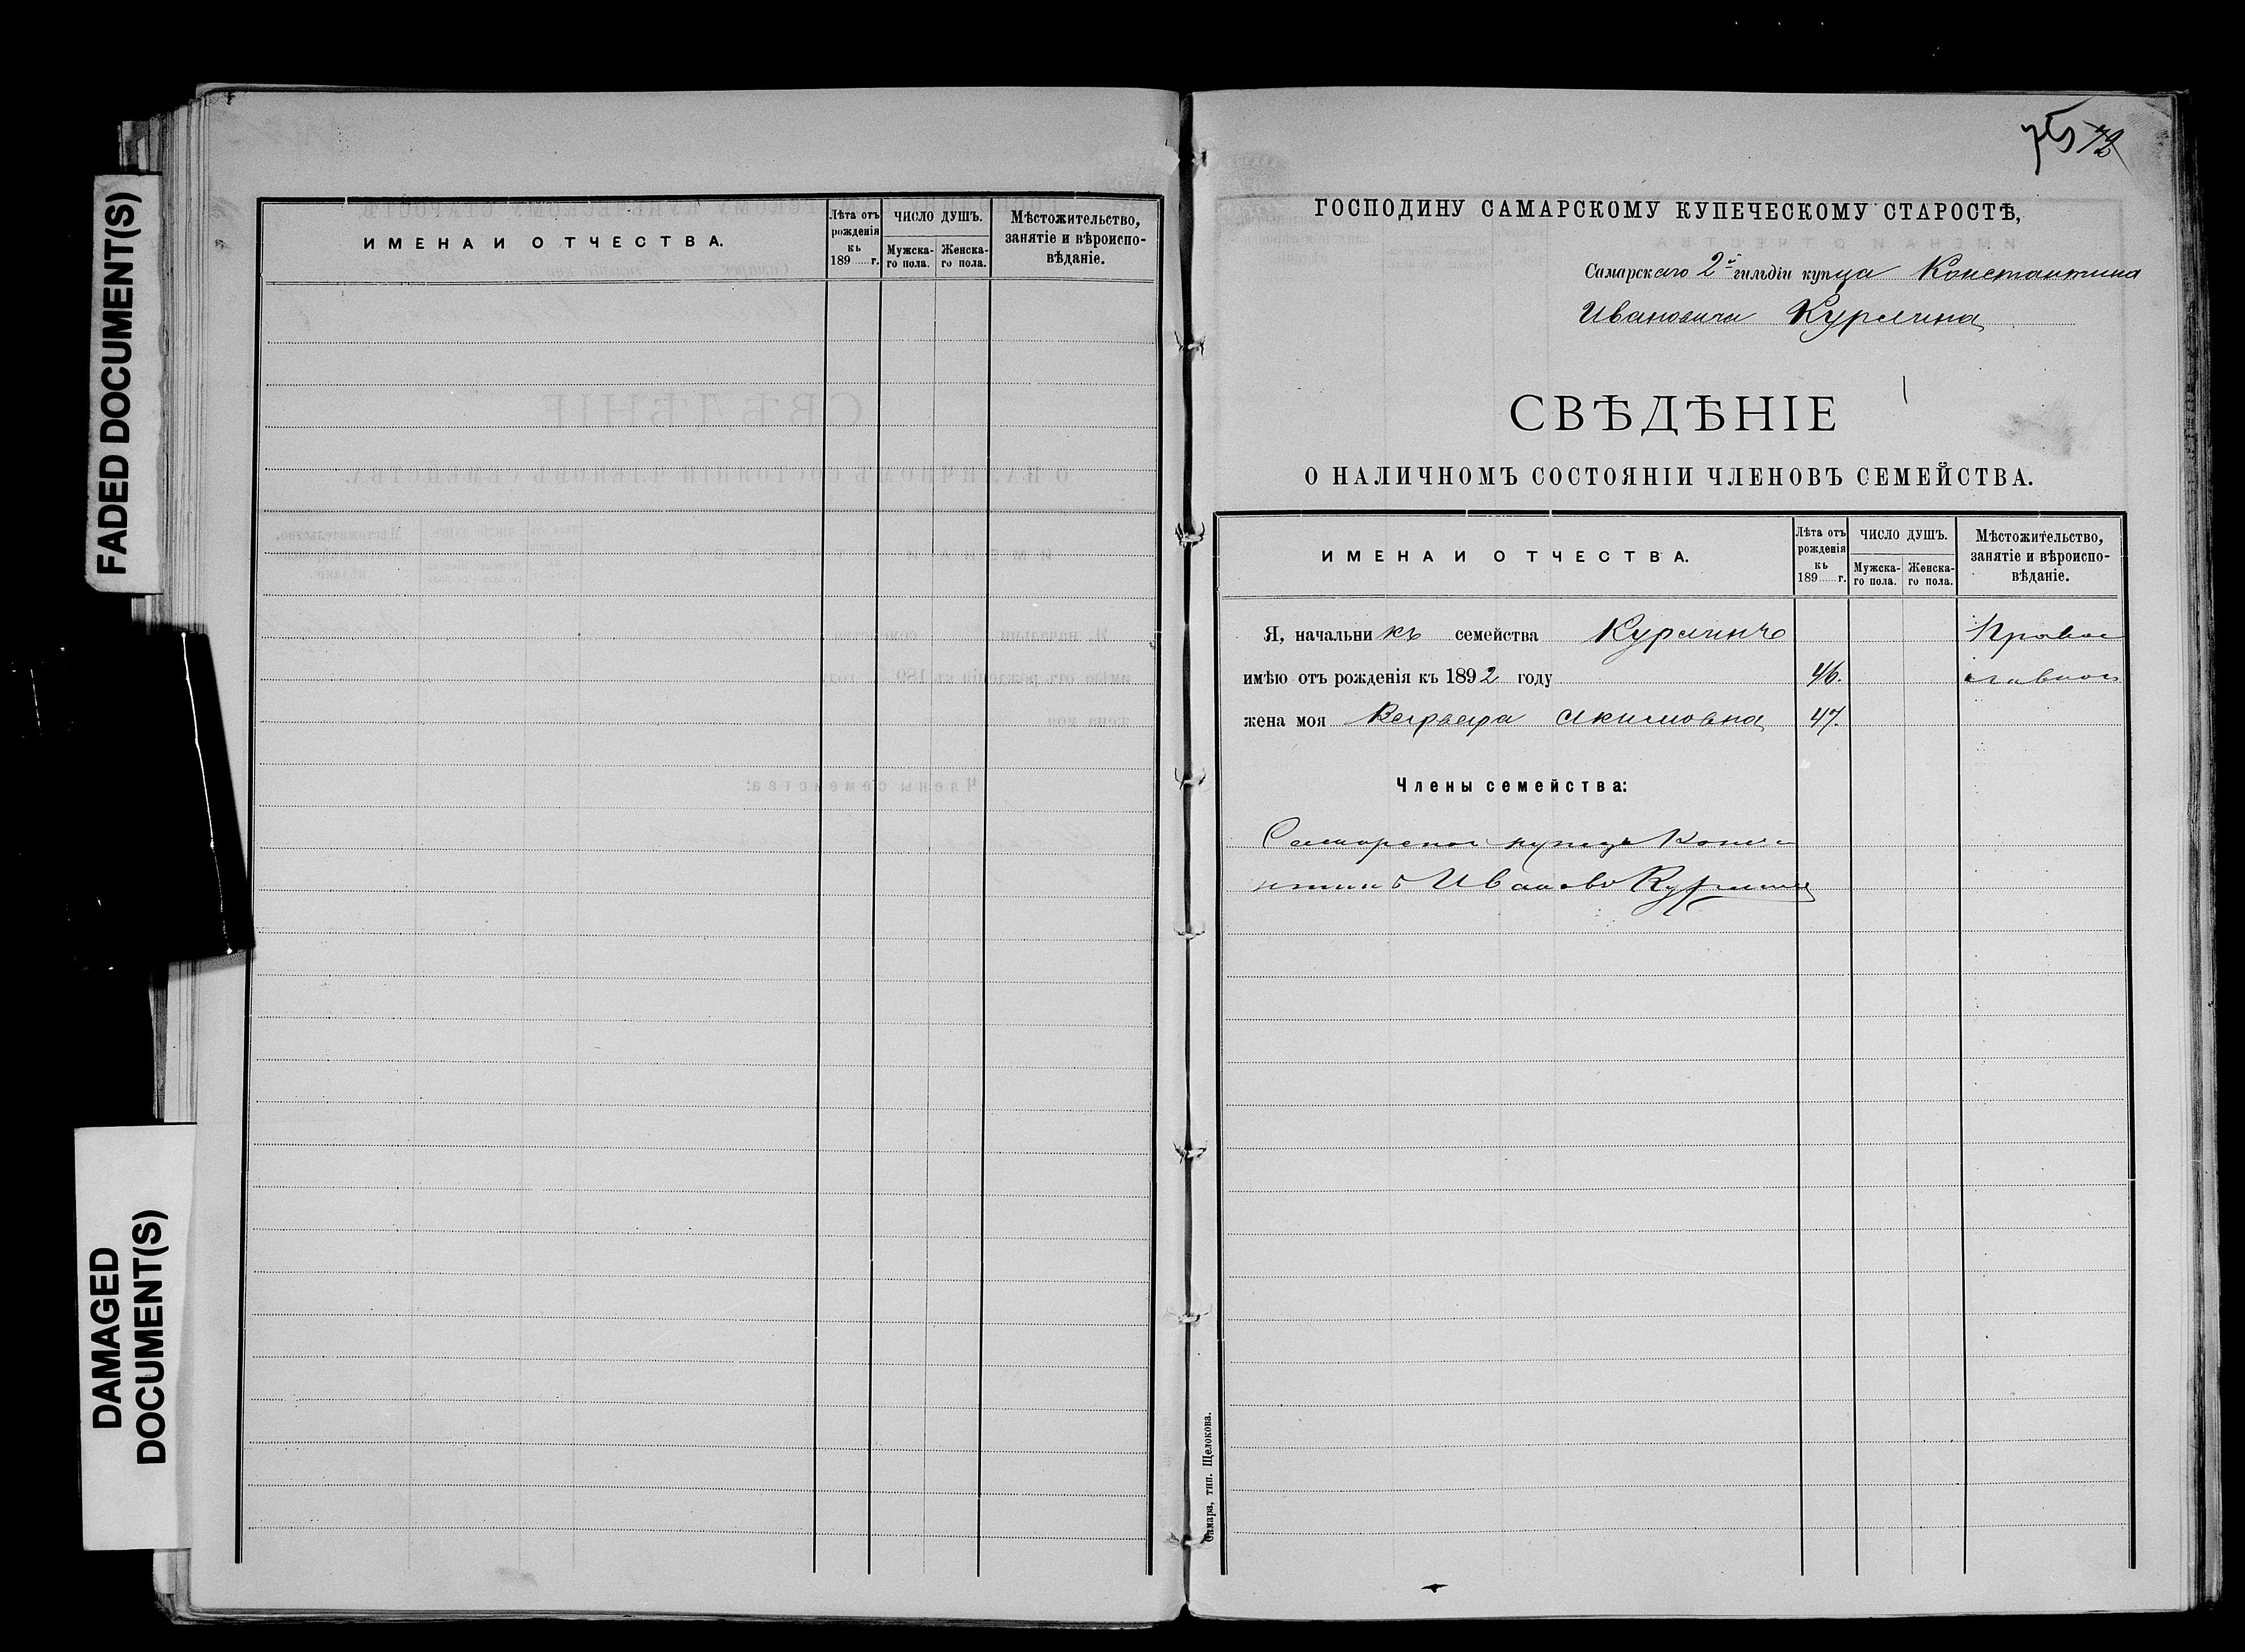 FADED DOCUMENT(S)
DAMAGED
DOCUMENT(S)
ИМЕНА И ОТЧЕСТВА.
Лѣта отъ рожденія къ 189 г.
ЧИСЛО ДУШЪ.
Мужска-го пола.
Женска-го пола.
Мѣстожительство,
занятіе и вѣроиспо-
вѣданіе.
75 72
ГОСПОДИНУ САМАРСКОМУ КУПЕЧЕСКОМУ СТАРОСТѢ,
Самарскаго 2й гильдіи купца Константина
Ивановича Курлина
СВѢДѢНІЕ
О НАЛИЧНОМЪ СОСТОЯНІИ ЧЛЕНОВЪ СЕМЕЙСТВА.
ИМЕНА И ОТЧЕСТВА.
Лѣта отъ рожденія къ 189 г.
ЧИСЛО ДУШЪ.
Мужска-го пола.
Женска-го пола.
Мѣстожительство,
занятіе и вѣроиспо-
вѣданіе.
Я, начальникъ семейства Курлинъ Право
имѣю отъ рожденія къ 1892 году 46. славной
жена моя Варвара Акимовна 47.
Члены семейства:
Самарской купецъ Конста
нтинъ Ивановъ Курлинъ
Самара, тип. Щелокова.